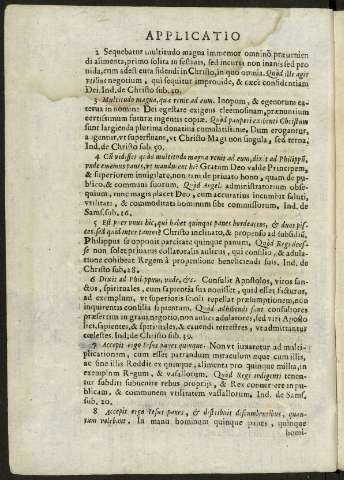 APPLICATIO
2 Sequebatur multitudo magna immemor omninò præuenien-
di alimenta, primo solita in festiuis, sed incuria non inanis sed pro
uida, cum adest cura sidendi in Christo, in quo omnia. Quòd ille agit
verius negotium, qui sequitur improuidè, & cæci confidentiam
Dei. Ind. de Christo sub. 40.
3 Multitudo magna, quæ venit ad eum. Inopum, & egenorum ca-
terua in nomine Dei egestate exigens eleemosinam, prænuntium
certissimum futuræ ingentis copiæ. Quòd pauperi exeunti Christum
sunt largienda plurima donatiua cumulatissimè. Dum erogantur,
augentur, vt superfluant, vt Christo Magi non singula, sed terna.
Ind. de Christo sub. 50.
4 Cũ vidisset quòd multitudo magna venit ad eum, dixit ad Philippũ,
vnde ememus panes, vt manducent hi? Gratum Deo valde Principem,
& superiorem inuigilare, non tam de priuato bono, quam de pu-
blico, & communi suorum. Quòd Angel. administratorum obse-
quium, tunc magis placet Deo, cum accuratius incumbat saluti,
vtilitati, & commoditati hominum sibi commissorum. Ind. de
Sams. sub. 16.
5 Est puer vnus hic, qui habet quinque panes hordeaceos, & duos pis-
ces, sed quid inter tantos? Christo inclinato, & propenso ad subsidiũ,
Philippus se opponit parcitate quinque panum. Quòd Regi deesse
non solet priuatus collateralis aulicus, qui consilio, & adula-
tione cohibeat Regem à propensione beneficiendi suis. Ind. de
Christo sub. 28.
6 Dixit ad Philippum, vnde, &c. Consulit Apostolos, viros san-
ctos, spirituales, cum sapientia sua nouisset, quid esset facturus,
ad exemplum, vt superioris sciolt repellat præsumptionem, non
inquirentis consilia sapientum. Quòd adhibendi sunt consultores
præsertim in graui negotio, non aulici adulatores, sed viri Aposto
lici, sapientes, & spirituales, & cauendi terrestres, vt admittantur
cœlestes. Ind. de Christo sub. 39.
7 Accepit ergo Iesus panes quinque. Non vt iuuaretur ad multi-
plicationem, cum esset patrandum miraculum æque cum illis,
ac sine illis Reddit ex quinque, alimenta pro quinque millia, in
exemplum Regum, & vasallorum. Quòd Regi indigenti tenen-
tur subditi subuenire rebus proprijs, & Rex conuertere in pu-
blicam, & communem vtilitatem vassallorum. Ind. de Sams.
sub. 20.
8 Accepit ergo Iesus panes, & distribuit discumbentibus, quan-
tum volebant. In manu hominum quinque panes, quinque
homi-